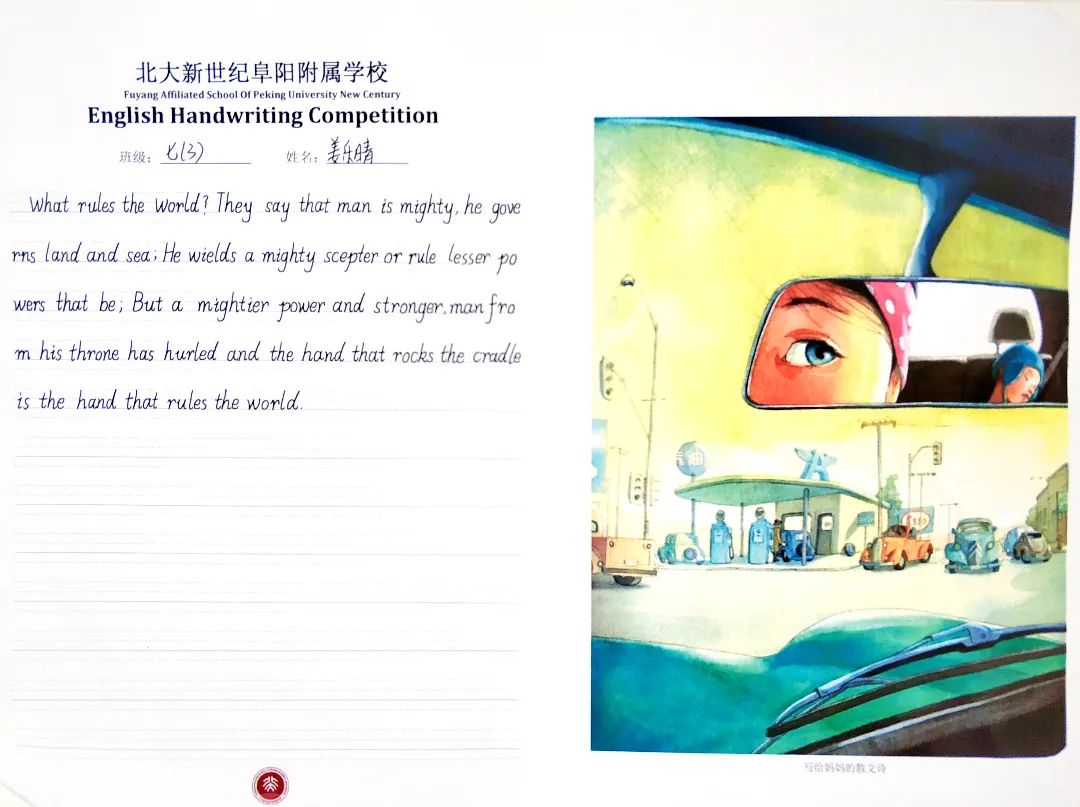 北大新世纪阜阳附属学校
Fuyang Affiliated School Of Peking University New Century
English Handwriting Competition
班级：七(3) 姓名：姜乐晴
What rules the world? They say that man is mighty, he gove
rns land and sea; He wields a mighty scepter or rule lesser po
wers that be; But a mightier power and stronger, man fro
m his throne has hurled and the hand that rocks the cradle
is the hand that rules the world.
汽油
A
写给妈妈的散文诗